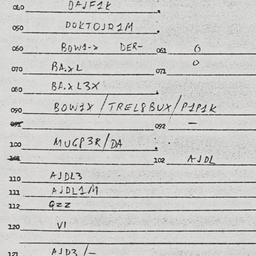 040 DAJF1K
050 DOKTOJD1M
060 BOW1-> DER- 061 0
070 BA.XL 071 0
080 BA.XL3X
090 BOW1X/TREL8BUX/P1P1K
091 092 -
100 MUGP3R/DA
101 102 AJDL
110 AJDL3
111 AJDL1/M
112 QZZ
120 VI
121 AJD3/-